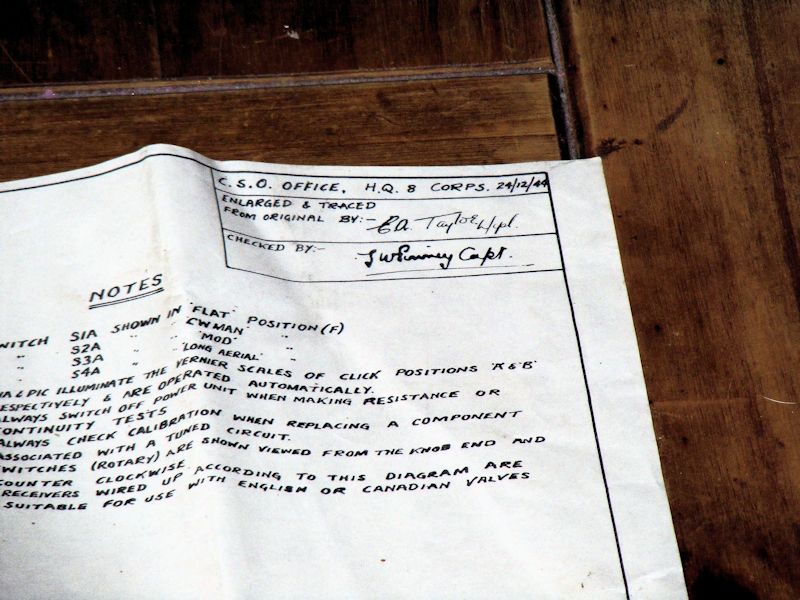 C.S.O. OFFICE, H.Q. 8 CORPS. 24/12/44
ENLARGED & TRACED
FROM ORIGINAL BY:- E.A. Taylor L/Cpl.
CHECKED BY:- Capt.
NOTES
WITCH S1A SHOWN IN 'FLAT' POSITION (F)
" S2A " " 'CW MAN' "
" S3A " " 'MOD' "
" S4A " " 'LONG AERIAL' "
& P1C ILLUMINATE THE VERNIER SCALES OF CLICK POSITIONS 'A & B'
RESPECTIVELY & ARE OPERATED AUTOMATICALLY.
ALWAYS SWITCH OFF POWER UNIT WHEN MAKING RESISTANCE OR
CONTINUITY TESTS
ALWAYS CHECK CALIBRATION WHEN REPLACING A COMPONENT
ASSOCIATED WITH A TUNED CIRCUIT.
SWITCHES (ROTARY) ARE SHOWN VIEWED FROM THE KNOB END AND
COUNTER CLOCKWISE.
RECEIVERS WIRED UP ACCORDING TO THIS DIAGRAM ARE
SUITABLE FOR USE WITH ENGLISH OR CANADIAN VALVES